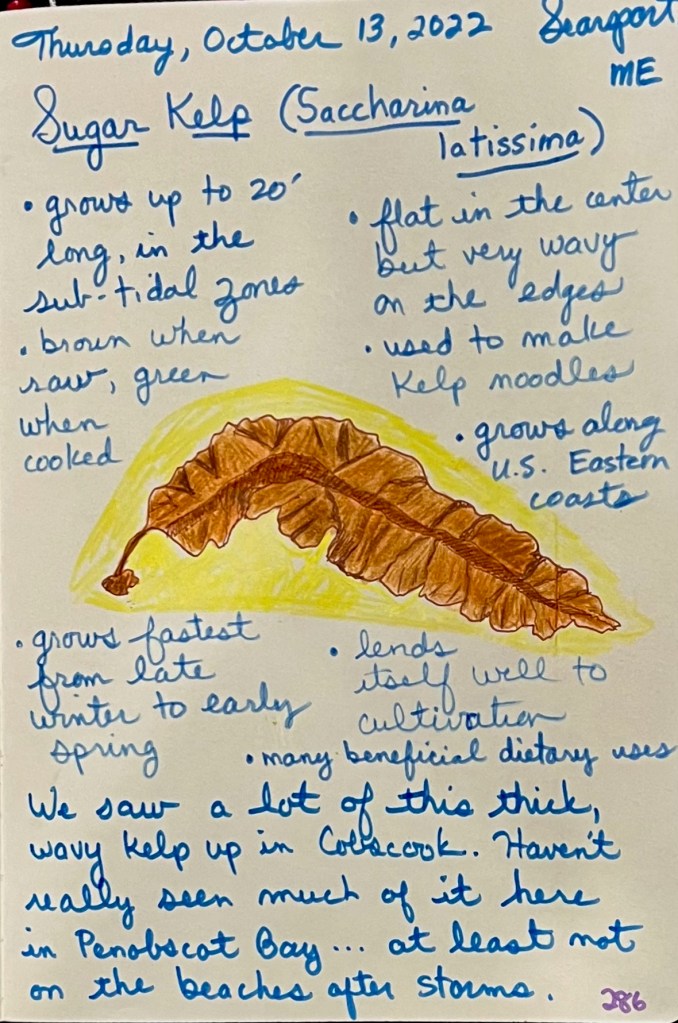 Thursday, October 13, 2022 Searsport
ME
Sugar Kelp (Saccharina
latissima)
• grows up to 20'
long, in the
sub-tidal zones
• brown when
raw, green
when
cooked
• flat in the center
but very wavy
on the edges
• used to make
kelp noodles
• grows along
U.S. Eastern
coasts
• grows fastest
from late
winter to early
spring
• lends
itself well to
cultivation
• many beneficial dietary uses
We saw a lot of this thick,
wavy kelp up in Cobscook. Haven't
really seen much of it here
in Penobscot Bay... at least not
on the beaches after storms.
286